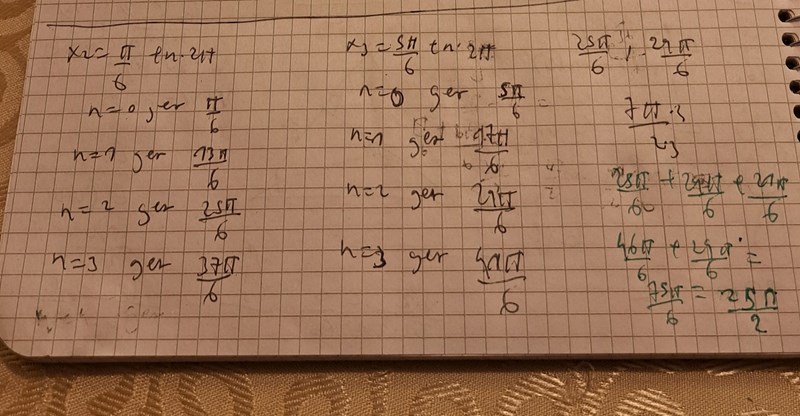 x₂ = π/6 + n·2π
n=0 ger π/6
n=1 ger 13π/6
n=2 ger 25π/6
n=3 ger 37π/6
x₃ = 5π/6 + n·2π
n=0 ger 5π/6
n=1 ger 17π/6
n=2 ger 29π/6
n=3 ger 41π/6
25π/6 , 29π/6
7π·3
46π/6 + 29π/6 =
75π/6 = 25π/2